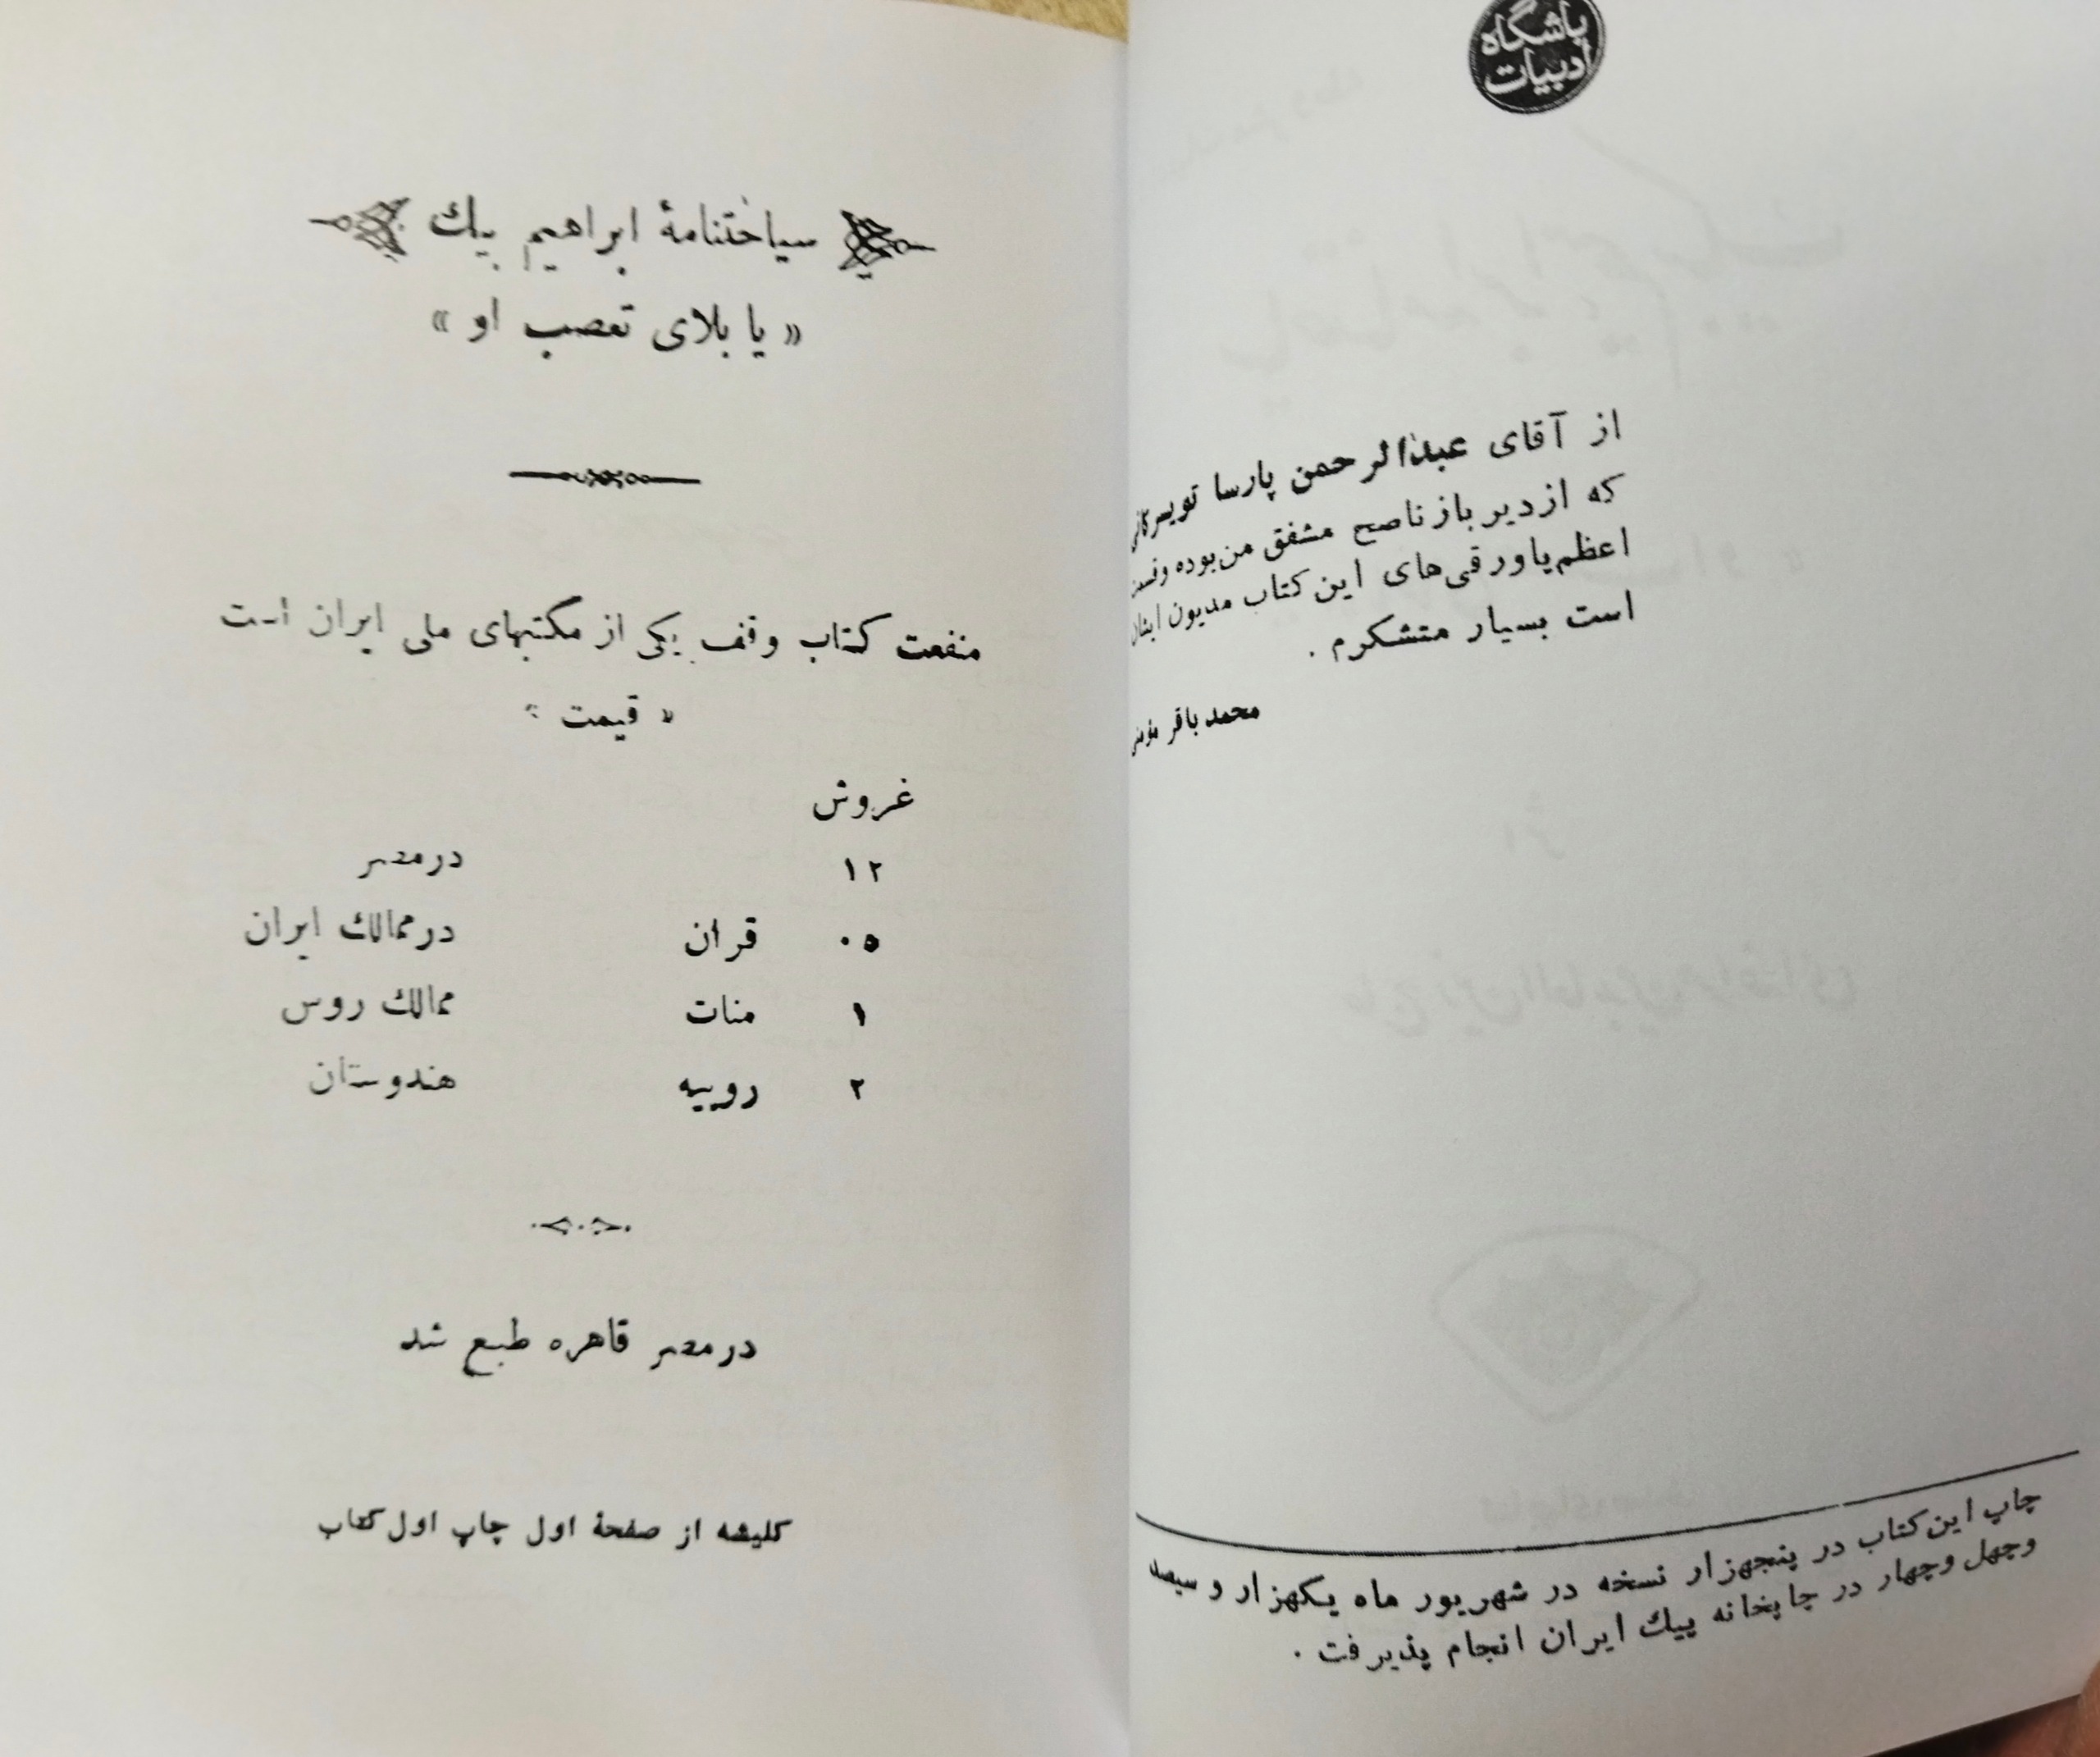 باشگاه
ادبیات
از آقای عبدالرحمن پارسا تویسرکانی
که از دیر باز ناصح مشفق من بوده وقسمت
اعظم پاورقی‌های این کتاب مدیون ایشان
است بسیار متشکرم .
محمد باقر مؤمنی
چاپ این کتاب در پنجهزار نسخه در شهریور ماه یکهزار و سیصد
وچهل وچهار در چاپخانه پیك ایران انجام پذیرفت .
سیاحتنامهٔ ابراهیم بیك
« یا بلای تعصب او »
منفعت کتاب وقف یکی از مکتبهای ملی ایران است
« قیمت »
غروش
۱۲ در مصر
۰۵ قران در ممالك ایران
۱ منات ممالك روس
۲ روپیه هندوستان
در مصر قاهره طبع شد
کلیشه از صفحهٔ اول چاپ اول کتاب